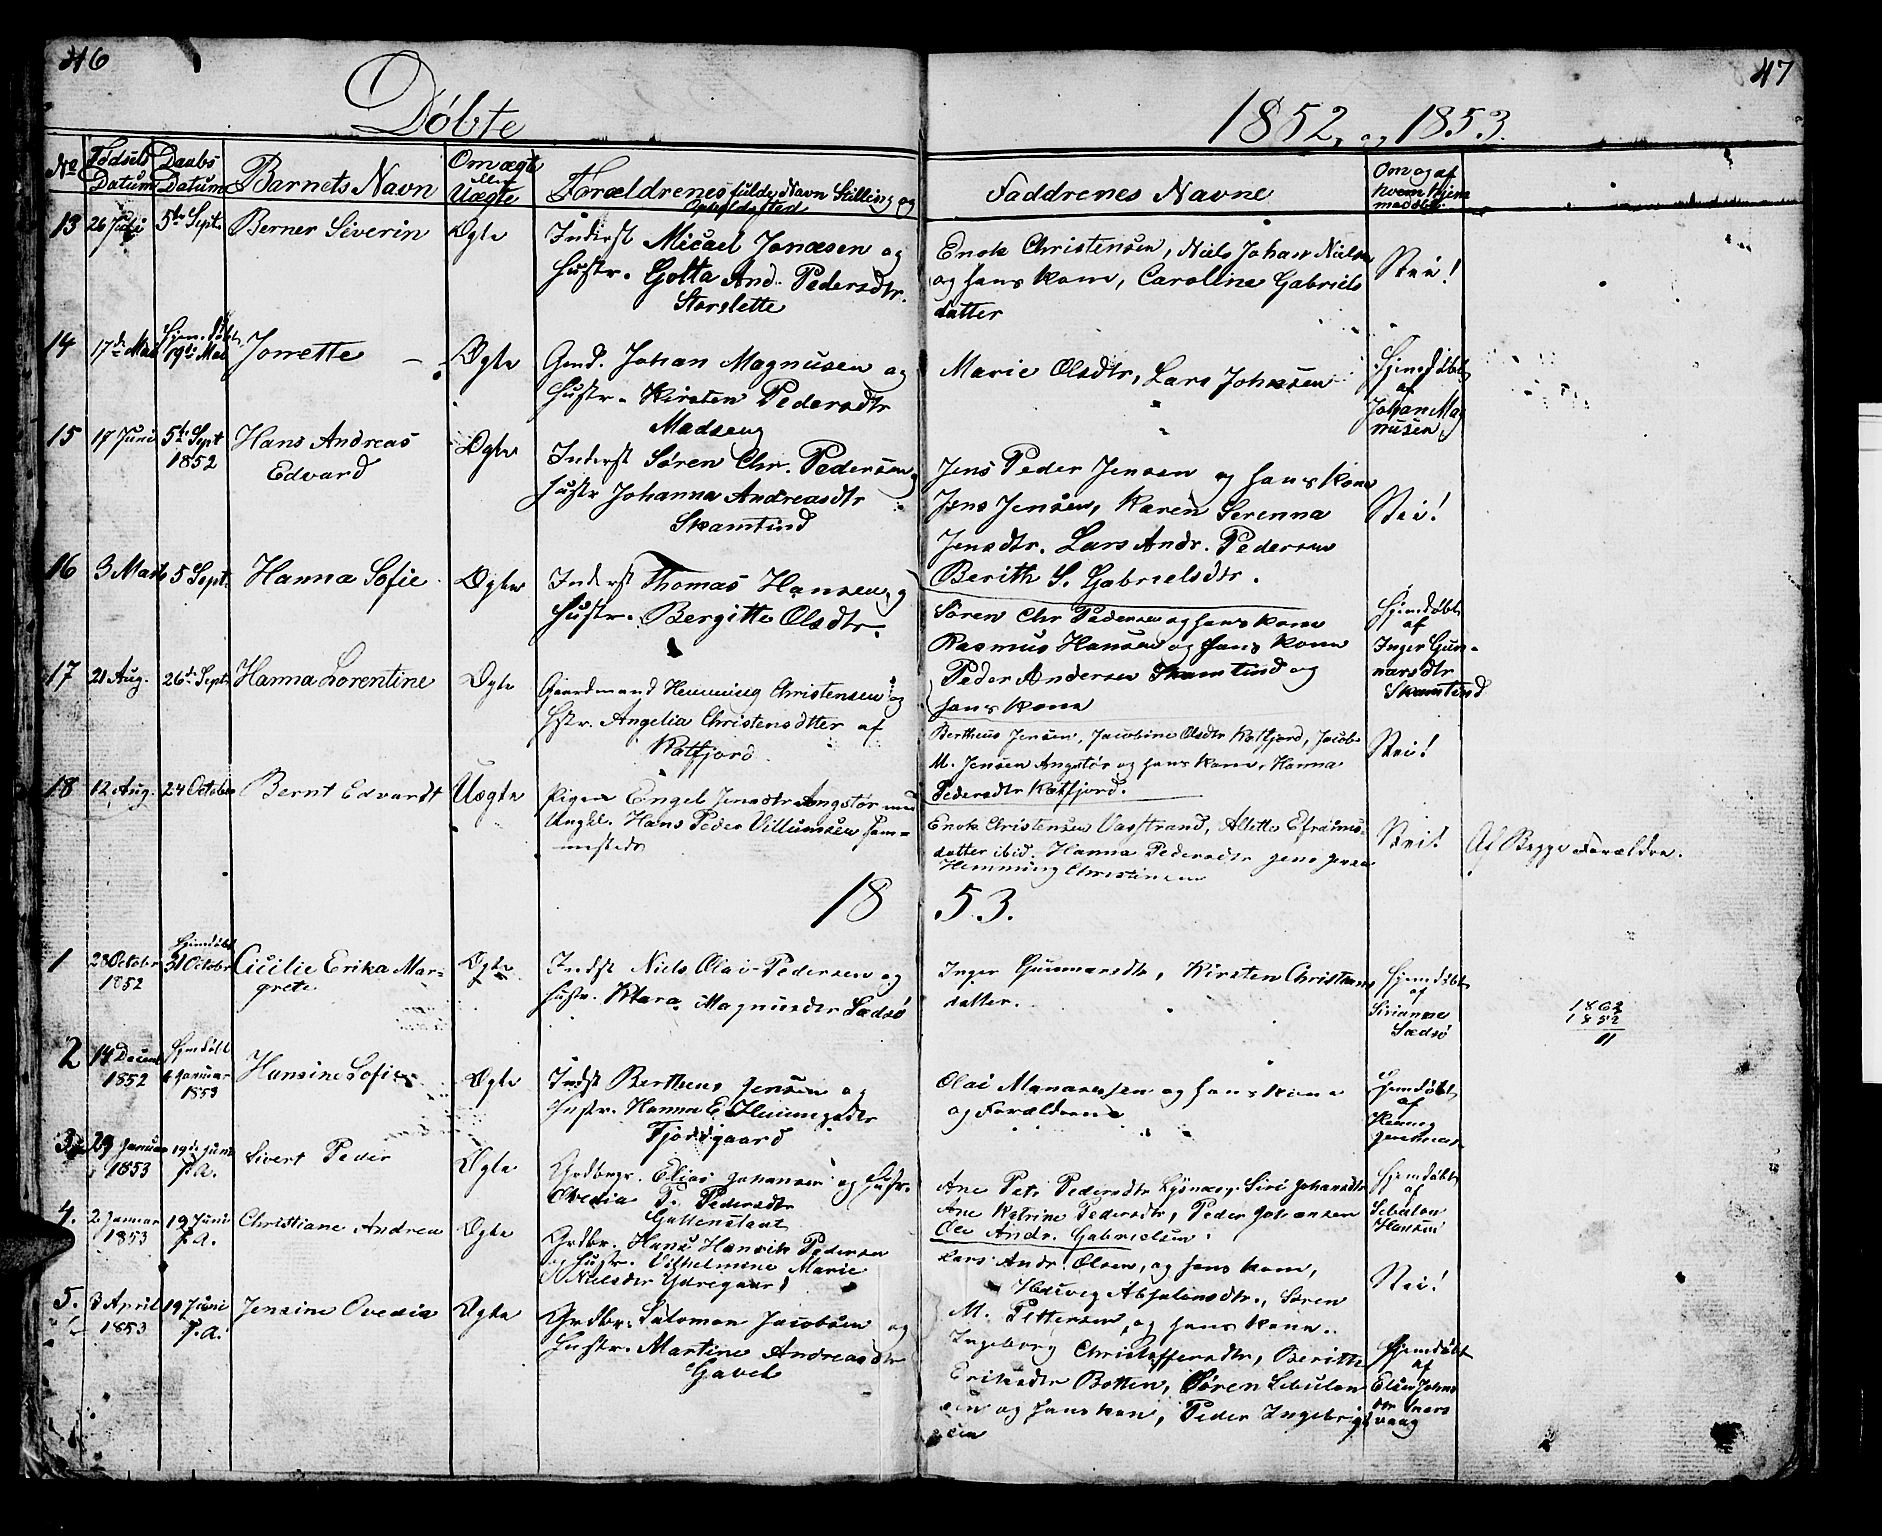 46
Døbte
1852, og 1853.
47
No
Fødsels Datum
Daabs Datum
Barnets Navn
Om ægte eller Uægte
Forældrenes fulde Navn Stilling og
Opholdssted
Faddrenes Navne
Om og af hvem hjemmedøbt
13 26 Juli 5te Sept. Berner Siverin Ægte
Inderst Micael Jonæsen og
Hustr. Golta And. Pedersdtr.
Storslette
Enok Christensen, Niels Johan Nielsen
og hans kone, Caroline Gabriels
datter
Nei!
14 17de Mai Hjemdøbt 19de Mai Jonette Ægte
Gmd. Johan Magnusen og
Hustr. Kirsten Pedersdtr
Madseng
Marie Olsdtr, Lars Johnsen
Hjemdøbt
af
Johan Mag
nusen
15 17 Juni 5te Sept 1852 Hans Andreas
Edvard
Ægte
Inderst Søren Chr. Pedersen og
Hustr Johanna Andreasdtr
Skamtind
Jens Peder Jensen og hans kone
Jens Jensen, Karen Serenna
Jensdtr. Lars Andr. Pedersen
Berith S. Gabrielsdtr.
Nei!
16 3 Mai 5 Sept. Hanna Sofie Ægte
Inderst Thomas Hansen og
Hustr. Bergitte Olsdtr.
Søren Chr Pedersen og hans kone
Rasmus Hansen og hans kone
Peder Andersen Skamtind og
hans kone
Hjemdøbt
af
Inger Gun-
narsdtr
Skamtind
17 21 Aug. 26de Sept. Hanna Lorentine Ægte
Gaardmand Henning Christensen og
Hstr. Angelia Christensdtter af
Katfjord
Bertheus Jensen, Jacobine Olsdtr Katfjord, Jacob
M. Jensen Angstør og hans kone, Hanna
Pedersdtr Katfjord.
Nei!
18 12 Aug. 24 October Bernt Edvardt Uægte
Pigen Engel Jensdtr Angstør med
Ungkl. Hans Peder Villumsen sam-
mesteds
Enok Christensen Vasstrand, Alette Efraims-
datter ibid. Hanna Pedersdtr Jens Jensen
Hemming Christensen
Nei!
Af Begge Forældre.
1853.
1 28 Octobr 1852 Hjemdøbt 31 Octobr Cicilie Erika Mar-
grete
Ægte
Indst Niels Olai Pedersen og
Hustr. Klara Magnusdtr Sædsø
Inger Gunnarsdtr, Kirsten Christians
datter.
Hjemdøbt
af
Sirianne
Sædsø
1862
1852
11
2 14 Decemb 1852 Hjemdøbt 6 Januar 1853 Hansine Sofie Ægte
Indst Bertheus Jensen og
Hustr. Hanna E. Henningsdtr
Fjordgaard
Olai Manassesen og hans kone
og Forældrene
Hjemdøbt
af
Henning
3 29 Januar 1853 19de Juni f. A. Sivert Peder Ægte
Grdbrgr. Elias Johansen og Hustr.
Ovedia P. Pedersdtr
Ane Petr Pedersdtr Lysnæs, Siri Johansdtr
Ane Katrine Pedersdtr, Peder Johansen
Ole Andr. Gabrielsen.
Hjemdøbt
af
Sebulon
Hansen
4. 2 Januar 1853 19 Juni f. A. Christiane Andrea Ægte
Grdbr. Hans Henrik Pedersen
og Hustr. Vilhelmine Marie
Nielsdtr Ydregaard
Lars Andr. Olsen, og hans kone,
Hedvig Absalonsdtr., Søren
M. Pettersen, og hans kone.
Nei!
5. 3 April 1853 19 Juni f. A. Jensine Ovedia Ægte
Grdbr. Salomon Jacobsen og
Hustr. Martine Andreasdtr
Gavel
Ingeborg Christoffersdtr, Beritte
Eriksdtr Botten, Søren Sebulon
sen og hans kon, Peder Ingebrigt
sen
Hjemdøbt
af
Elsen Johns
dtr
vaag